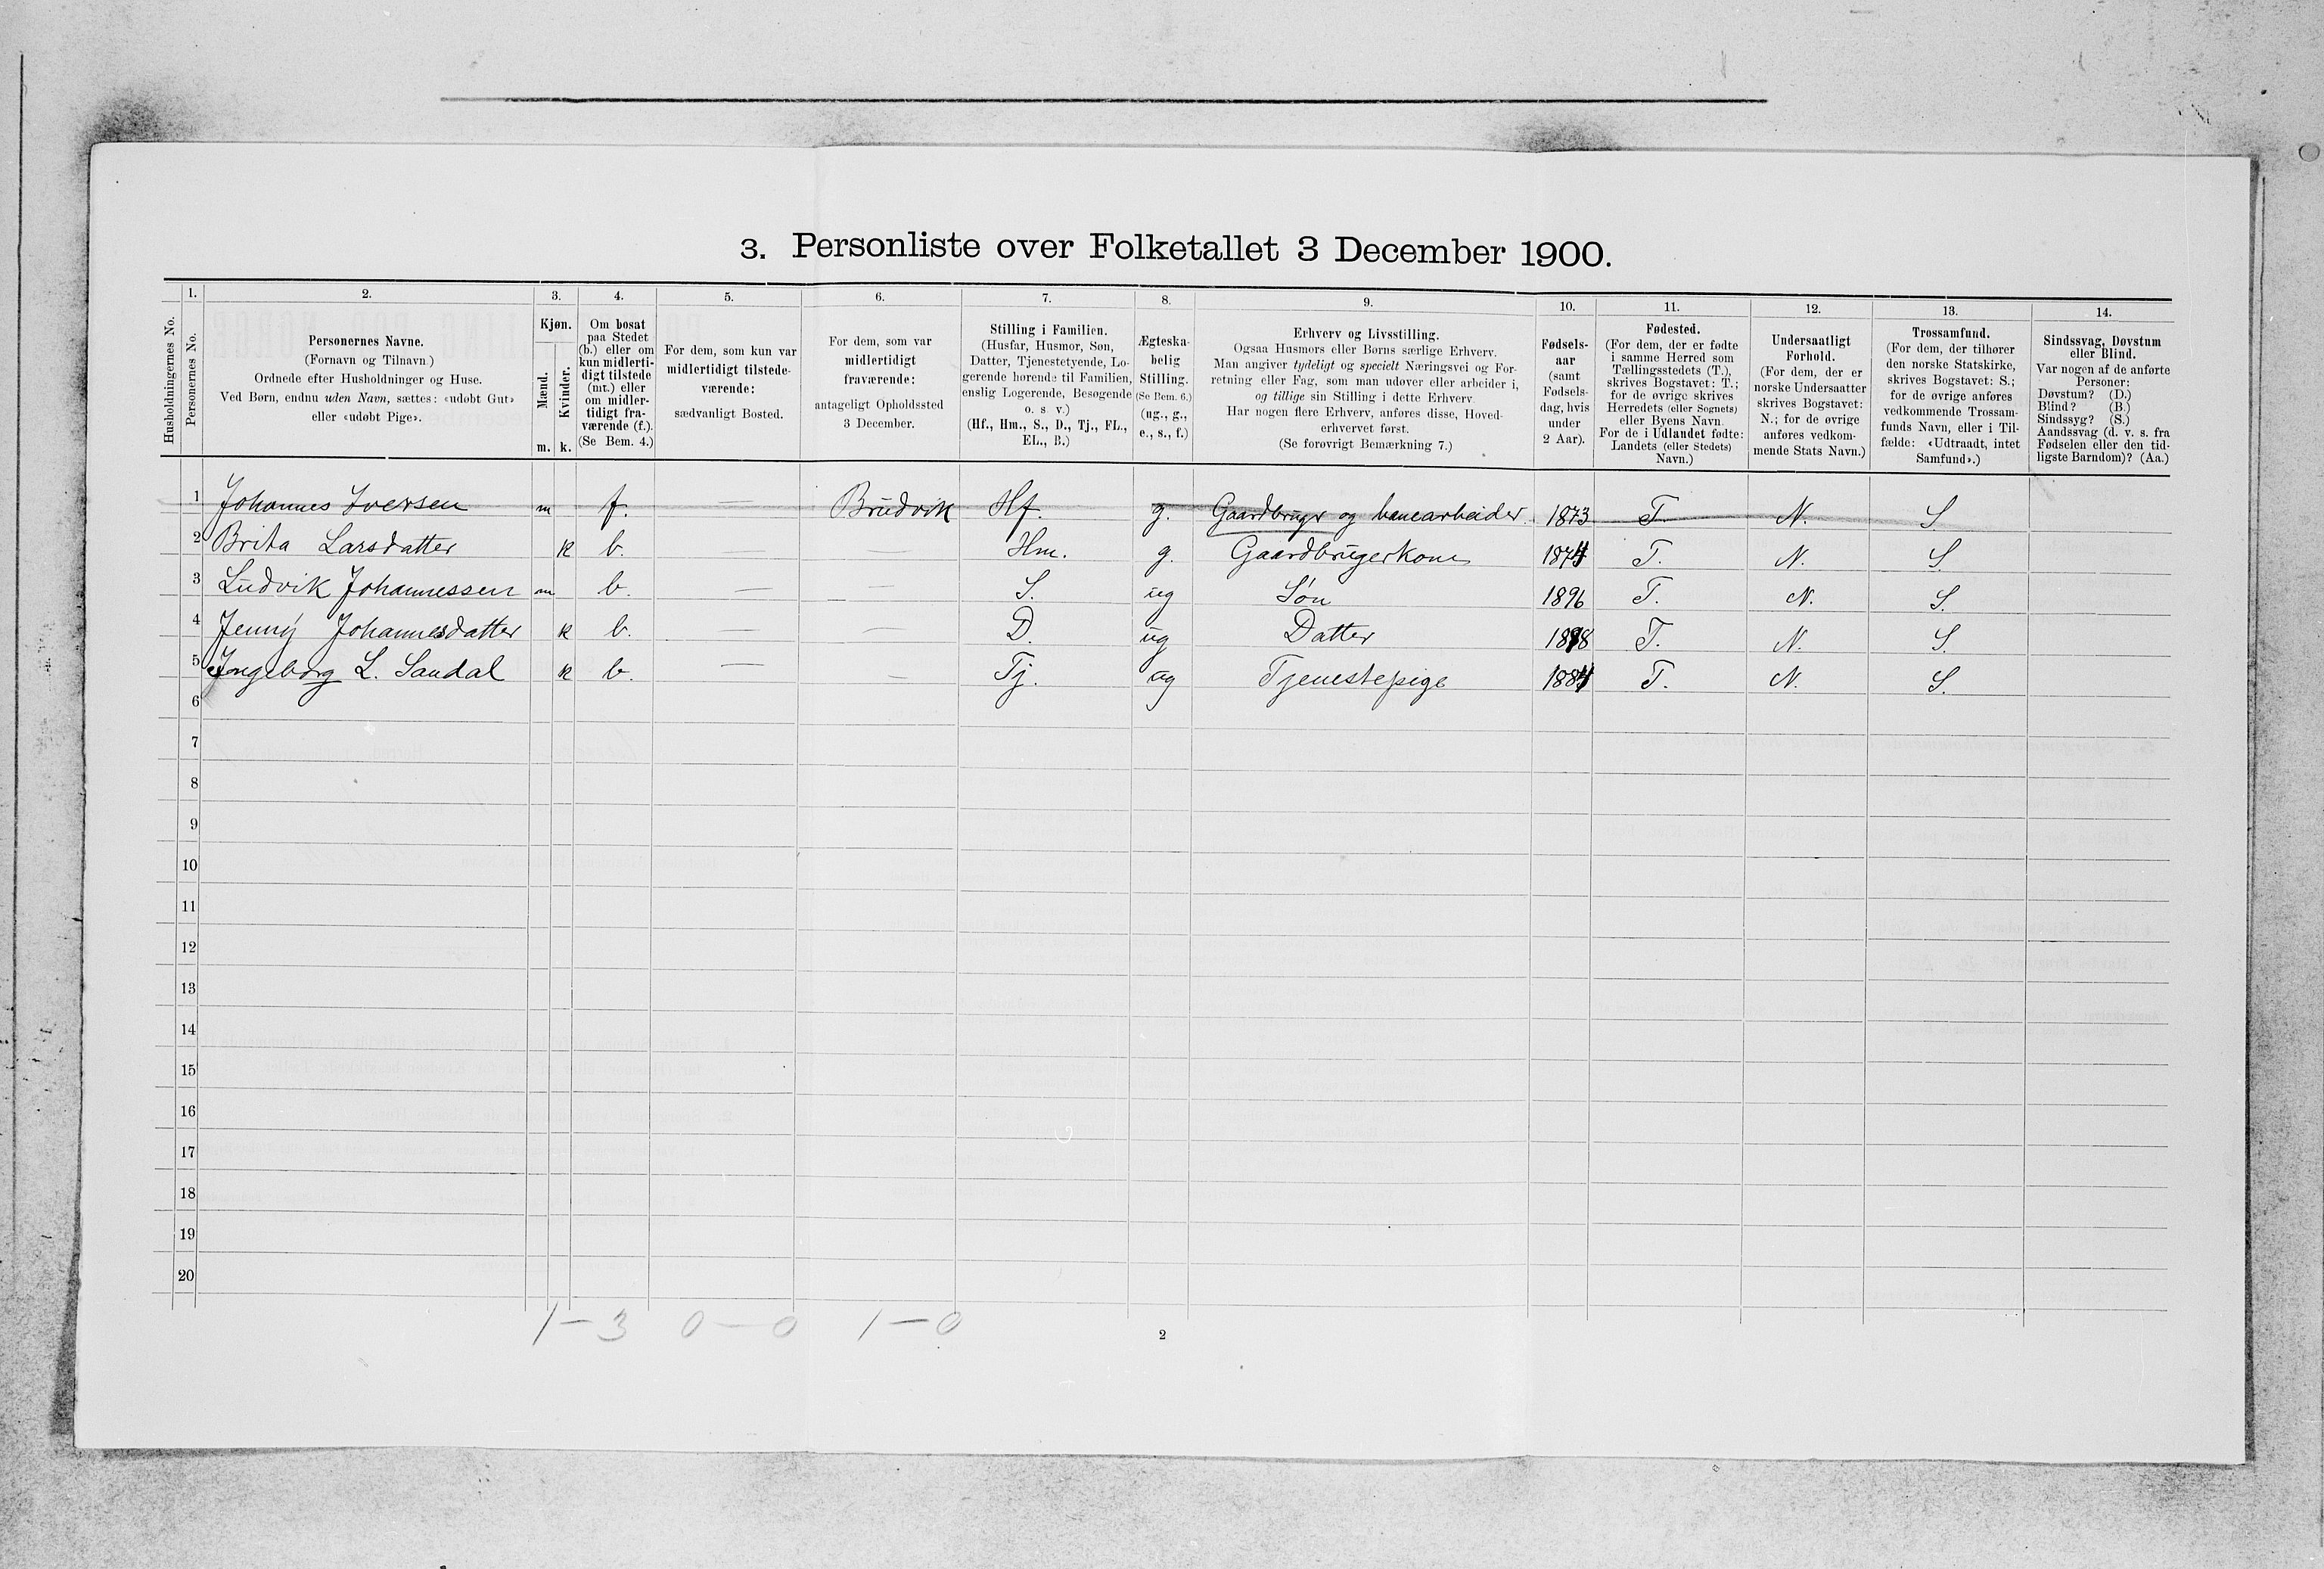 3. Personliste over Folketallet 3 December 1900.
1. 2. 3. 4. 5. 6. 7. 8. 9. 10. 11. 12. 13. 14.
Husholdningernes No.
Personernes No.
Personernes Navne.
(Fornavn og Tilnavn.)
Ordnede efter Husholdninger og Huse.
Ved Børn, endnu uden Navn, sættes: «udøbt Gut»
eller «udøbt Pige».
Kjøn.
Mænd.
Kvinder.
m. k.
Om bosat
paa Stedet
(b.) eller om
kun midlerti-
digt tilstede
(mt.) eller
om midler-
tidigt fra-
værende (f.).
(Se Bem. 4.)
For dem, som kun var
midlertidigt tilstede-
værende:
sædvanligt Bosted.
For dem, som var
midlertidigt
fraværende:
antageligt Opholdssted
3 December.
Stilling i Familien.
(Husfar, Husmor, Søn,
Datter, Tjenestetyende, Lo-
gerende hørende til Familien,
enslig Logerende, Besøgende
o. s. v.)
(Hf., Hm., S., D., Tj., FL.,
EL., B.)
Ægteska-
belig
Stilling.
(Se Bem. 6.)
(ug., g.,
e., s., f.)
Erhverv og Livsstilling.
Ogsaa Husmors eller Børns særlige Erhverv.
Man angiver tydeligt og specielt Næringsvei og For-
retning eller Fag, som man udøver eller arbeider i,
og tillige sin Stilling i dette Erhverv.
Har nogen flere Erhverv, anføres disse, Hoved-
erhvervet først.
(Se forøvrigt Bemærkning 7.)
Fødsels-
aar
(samt
Fødsels-
dag, hvis
under
2 Aar).
Fødested.
(For dem, der er fødte
i samme Herred som
Tællingsstedets (T.),
skrives Bogstavet: T.;
for de øvrige skrives
Herredets (eller Sognets)
eller Byens Navn.
For de i Udlandet fødte:
Landets (eller Stedets)
Navn.)
Undersaatligt
Forhold.
(For dem, der er
norske Undersaatter
skrives Bogstavet:
N.; for de øvrige
anføres vedkom-
mende Stats Navn.)
Trossamfund.
(For dem, der tilhører
den norske Statskirke,
skrives Bogstavet: S.;
for de øvrige anføres
vedkommende Trossam-
funds Navn, eller i Til-
fælde: «Udtraadt, intet
Samfund».)
Sindssvag, Døvstum
eller Blind.
Var nogen af de anførte
Personer:
Døvstum? (D.)
Blind? (B.)
Sindssyg? (S.)
Aandssvag (d. v. s. fra
Fødselen eller den tid-
ligste Barndom)? (Aa.)
1 Johannes Iversen m f. — Brudvik Hf. g. Gaardbruger og banearbeider. 1873 T. N. S.
2 Brita Larsdatter k b. — — Hm. g. Gaardbrugerkone 1874 T. N. S.
3 Ludvik Johannessen m b. — — S. ug Søn 1896 T. N. S.
4 Jenny Johannesdatter k b. — — D. ug Datter 1898 T. N. S.
5 Ingeborg L. Sandal k b. — — Tj. ug Tjenestepige 1884 T. N. S.
6
7
8
9
10
11
12
13
14
15
16
17
18
19
20
1 — 3 0 — 0 1 — 0
2